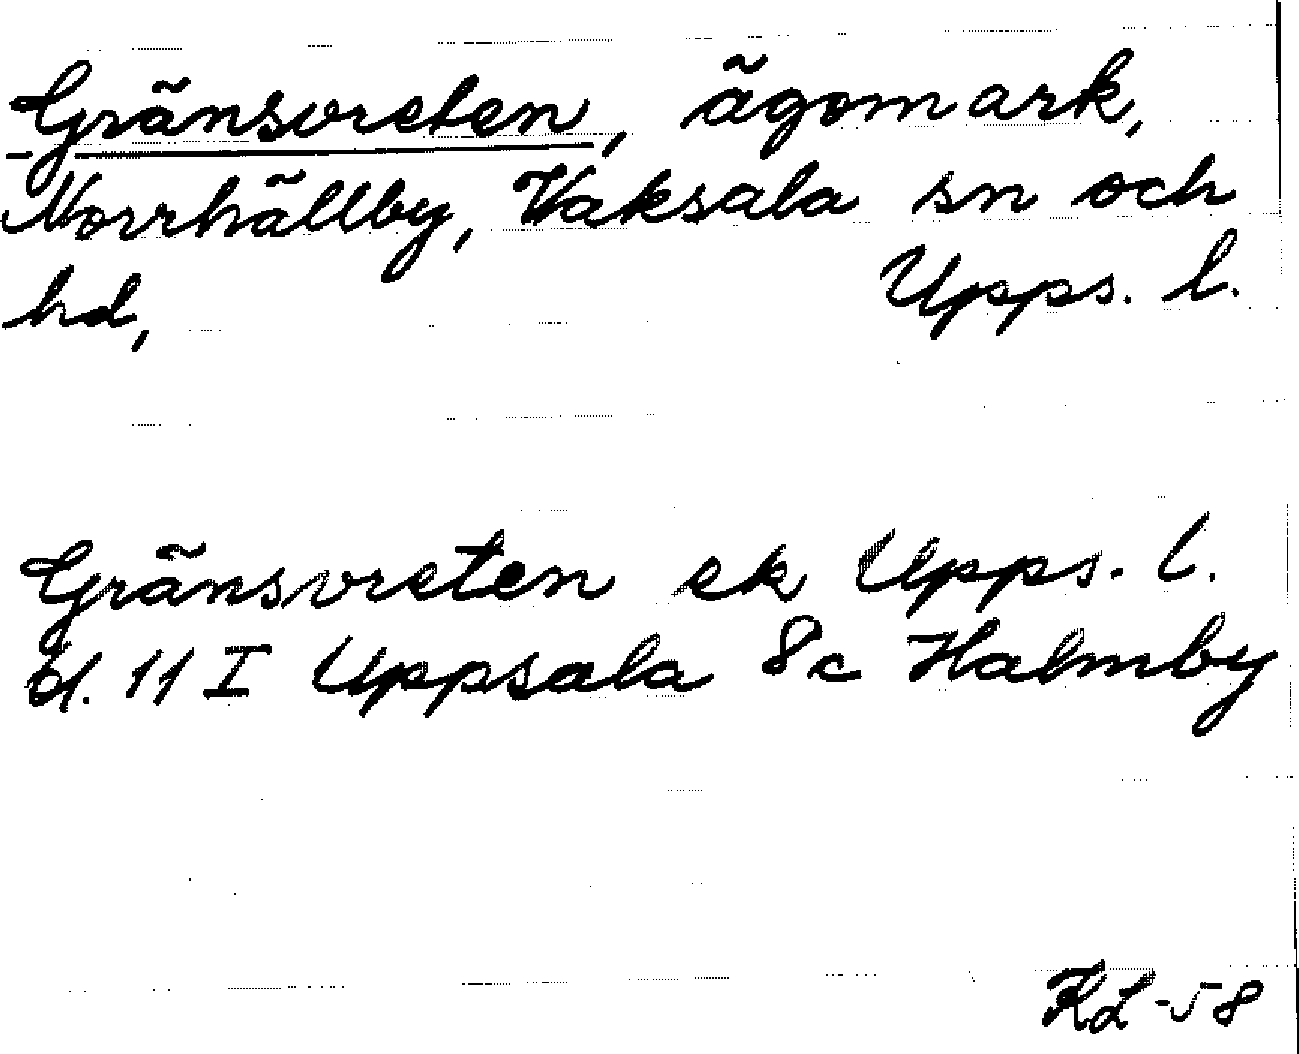 Gränsvreten, ägomark,
Norrhällby, Vaksala sn och
hd, Upps. l.
Gränsvreten ek Upps. l.
bl. 11 I Uppsala 8c Halmby
KL-58